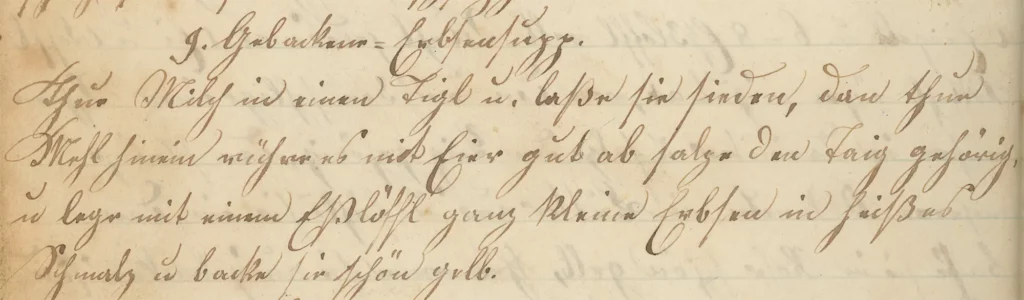 9. Gebackene=Erbsensupp.
Thue Milch in einen Tigl u. laße sie sieden, dan thue
Mehl hinein rühre es mit Eier gut ab salze den Taig gehörig,
u lege mit einem Eßlöffl ganz kleine Erbsen in heißes
Schmalz u backe sie schön gelb.